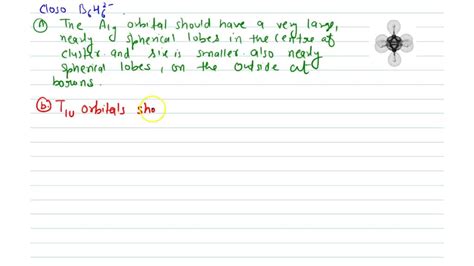 Closo B6H6^2-.
(a) The A1g orbital should have a very large,
nearly spherical lobes in the centre of
cluster and six is smaller also nearly
spherical lobes, on the outside at
borons.
(b) T1u orbitals sho